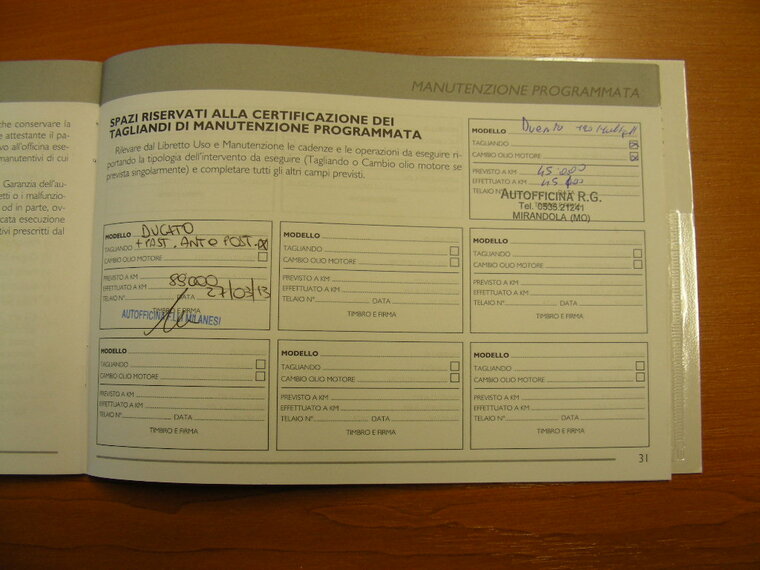 che conservare la
e attestante il pa-
vo all'officina ese-
manutentivi di cui
Garanzia dell'au-
etti o i malfunzio-
od in parte, ov-
cata esecuzione
tivi prescritti dal
MANUTENZIONE PROGRAMMATA
SPAZI RISERVATI ALLA CERTIFICAZIONE DEI
TAGLIANDI DI MANUTENZIONE PROGRAMMATA
Rilevare dal Libretto Uso e Manutenzione le cadenze e le operazioni da eseguire ri-
portando la tipologia dell'intervento da eseguire (Tagliando o Cambio olio motore se
prevista singolarmente) e completare tutti gli altri campi previsti.
MODELLO Ducato
TAGLIANDO
CAMBIO OLIO MOTORE
PREVISTO A KM 45.000
EFFETTUATO A KM
AUTOFFICINA R.G.
Tel. 0535.21241
MIRANDOLA (MO)
MODELLO DUCATO
TAGLIANDO + PAST. ANT O POST.
CAMBIO OLIO MOTORE
PREVISTO A KM 89000
EFFETTUATO A KM 27/03/13
TELAIO N° DATA
TIMBRO E FIRMA
AUTOFFICINA F.LLI MILANESI
MODELLO
TAGLIANDO
CAMBIO OLIO MOTORE
PREVISTO A KM
EFFETTUATO A KM
TELAIO N° DATA
TIMBRO E FIRMA
MODELLO
TAGLIANDO
CAMBIO OLIO MOTORE
PREVISTO A KM
EFFETTUATO A KM
TELAIO N° DATA
TIMBRO E FIRMA
MODELLO
TAGLIANDO
CAMBIO OLIO MOTORE
PREVISTO A KM
EFFETTUATO A KM
TELAIO N° DATA
TIMBRO E FIRMA
MODELLO
TAGLIANDO
CAMBIO OLIO MOTORE
PREVISTO A KM
EFFETTUATO A KM
TELAIO N° DATA
TIMBRO E FIRMA
MODELLO
TAGLIANDO
CAMBIO OLIO MOTORE
PREVISTO A KM
EFFETTUATO A KM
TELAIO N° DATA
TIMBRO E FIRMA
31